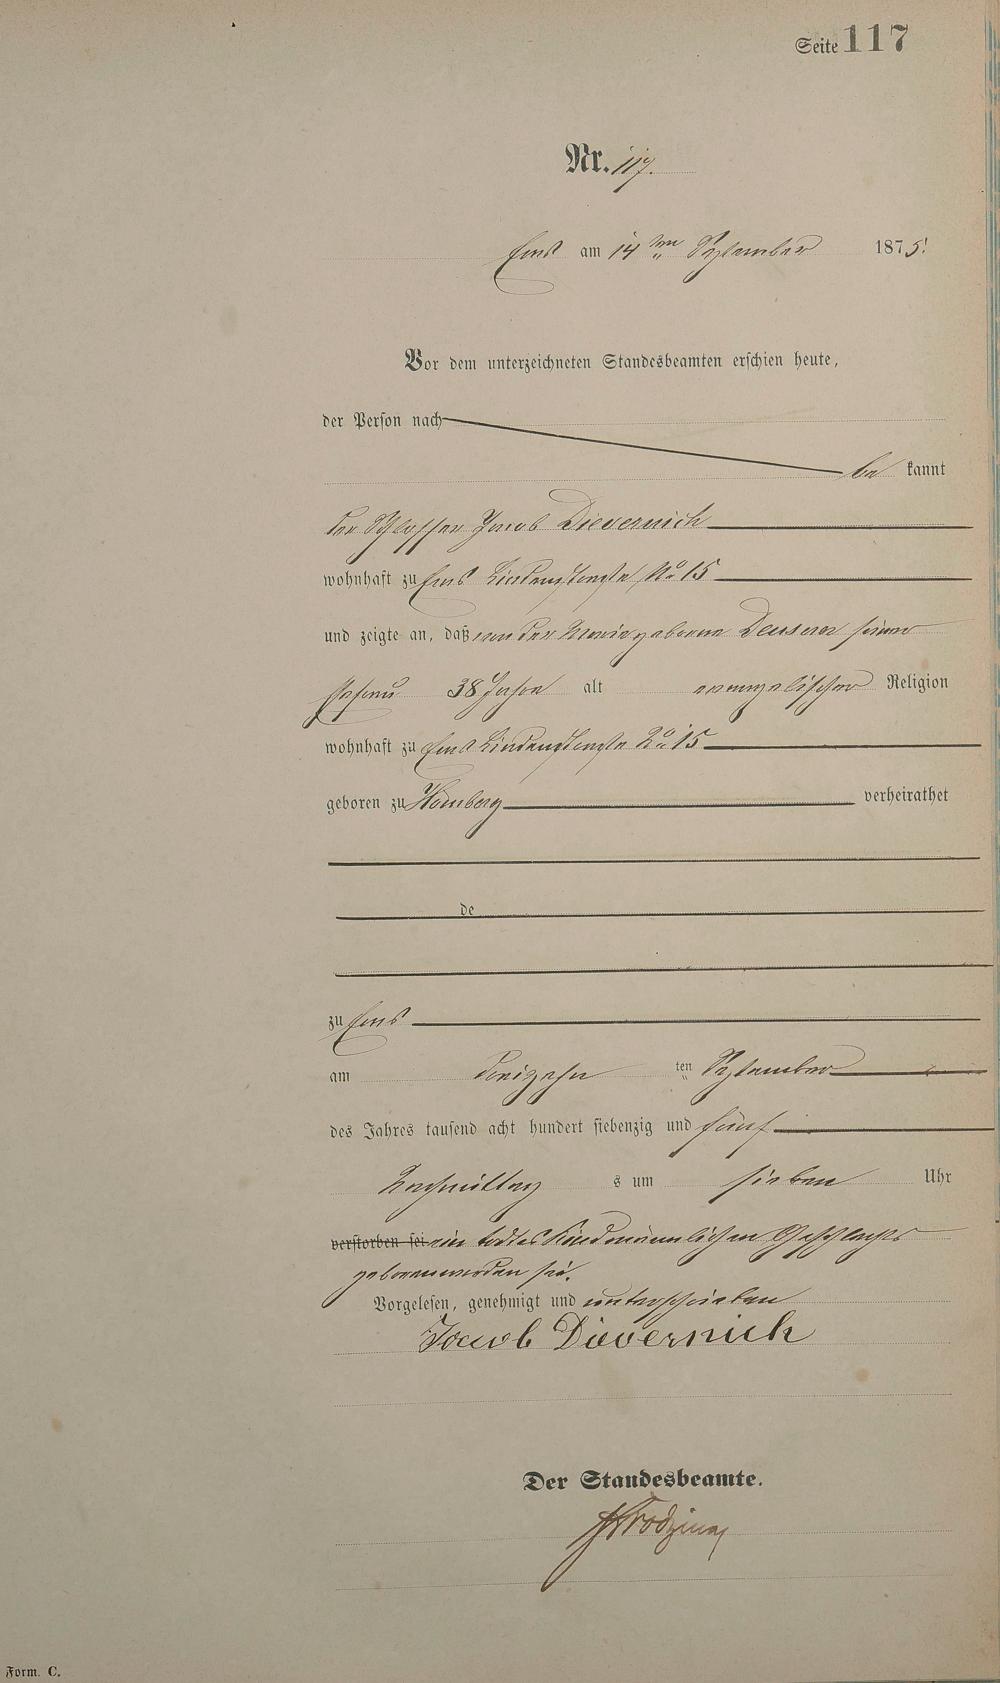 Seite 117
Nr. 117.
Ems am 14ten September 1875.
Vor dem unterzeichneten Standesbeamten erschien heute,
der Person nach
be kannt
der Schlosser Jacob Dievernich
wohnhaft zu Ems Lindenstraße No 15
und zeigte an, daß von der Marie geborene Deusner seiner
Ehefrau 38 Jahre alt evangelischer Religion
wohnhaft zu Ems Lindenstraße No 15
geboren zu Homberg verheirathet
de
zu Ems
am dreizehn ten September
des Jahres tausend acht hundert siebenzig und fünf
Nachmittag s um sieben Uhr
verstorben sei ein todtes Kind männlichen Geschlechts
geboren worden sei.
Vorgelesen, genehmigt und unterschrieben
Jacob Dievernich
Der Standesbeamte.
Form. C.